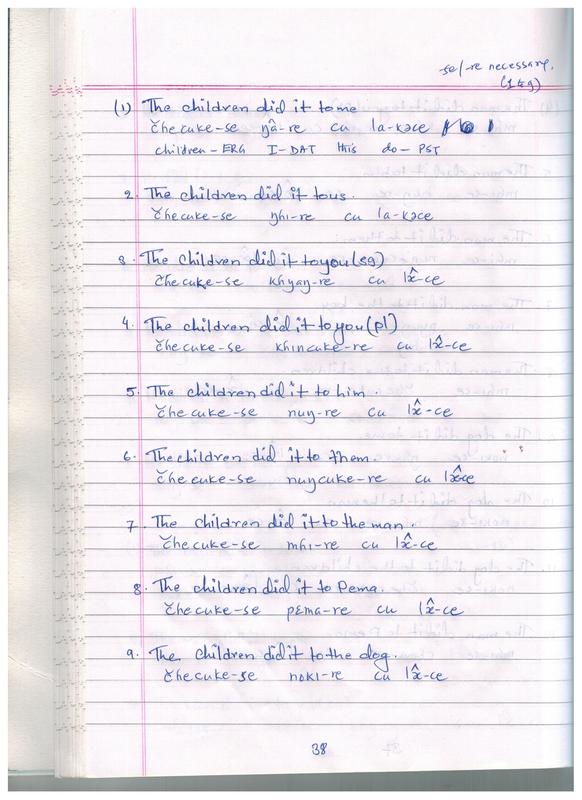 se/-re necessary.
(1 to 9)
(1) The children did it to me
čhecuke-se ŋâ-re cu la-kəce
children-ERG I-DAT this do-PST
2. The children did it to us.
čhecuke-se ŋhi-re cu la-kəce
3. The children did it to you (sg)
čhecuke-se khyaŋ-re cu lɔ̂-ce
4. The children did it to you (pl)
čhecuke-se khincuke-re cu lɔ̂-ce
5. The children did it to him.
čhecuke-se nuŋ-re cu lɔ̂-ce
6. The children did it to them.
čhecuke-se nuŋcuke-re cu lɔ̂-ce
7. The children did it to the man.
čhecuke-se mhi-re cu lɔ̂-ce
8. The children did it to Pema.
čhecuke-se pɛma-re cu lɔ̂-ce
9. The children did it to the dog.
čhecuke-se noki-re cu lɔ̂-ce
38